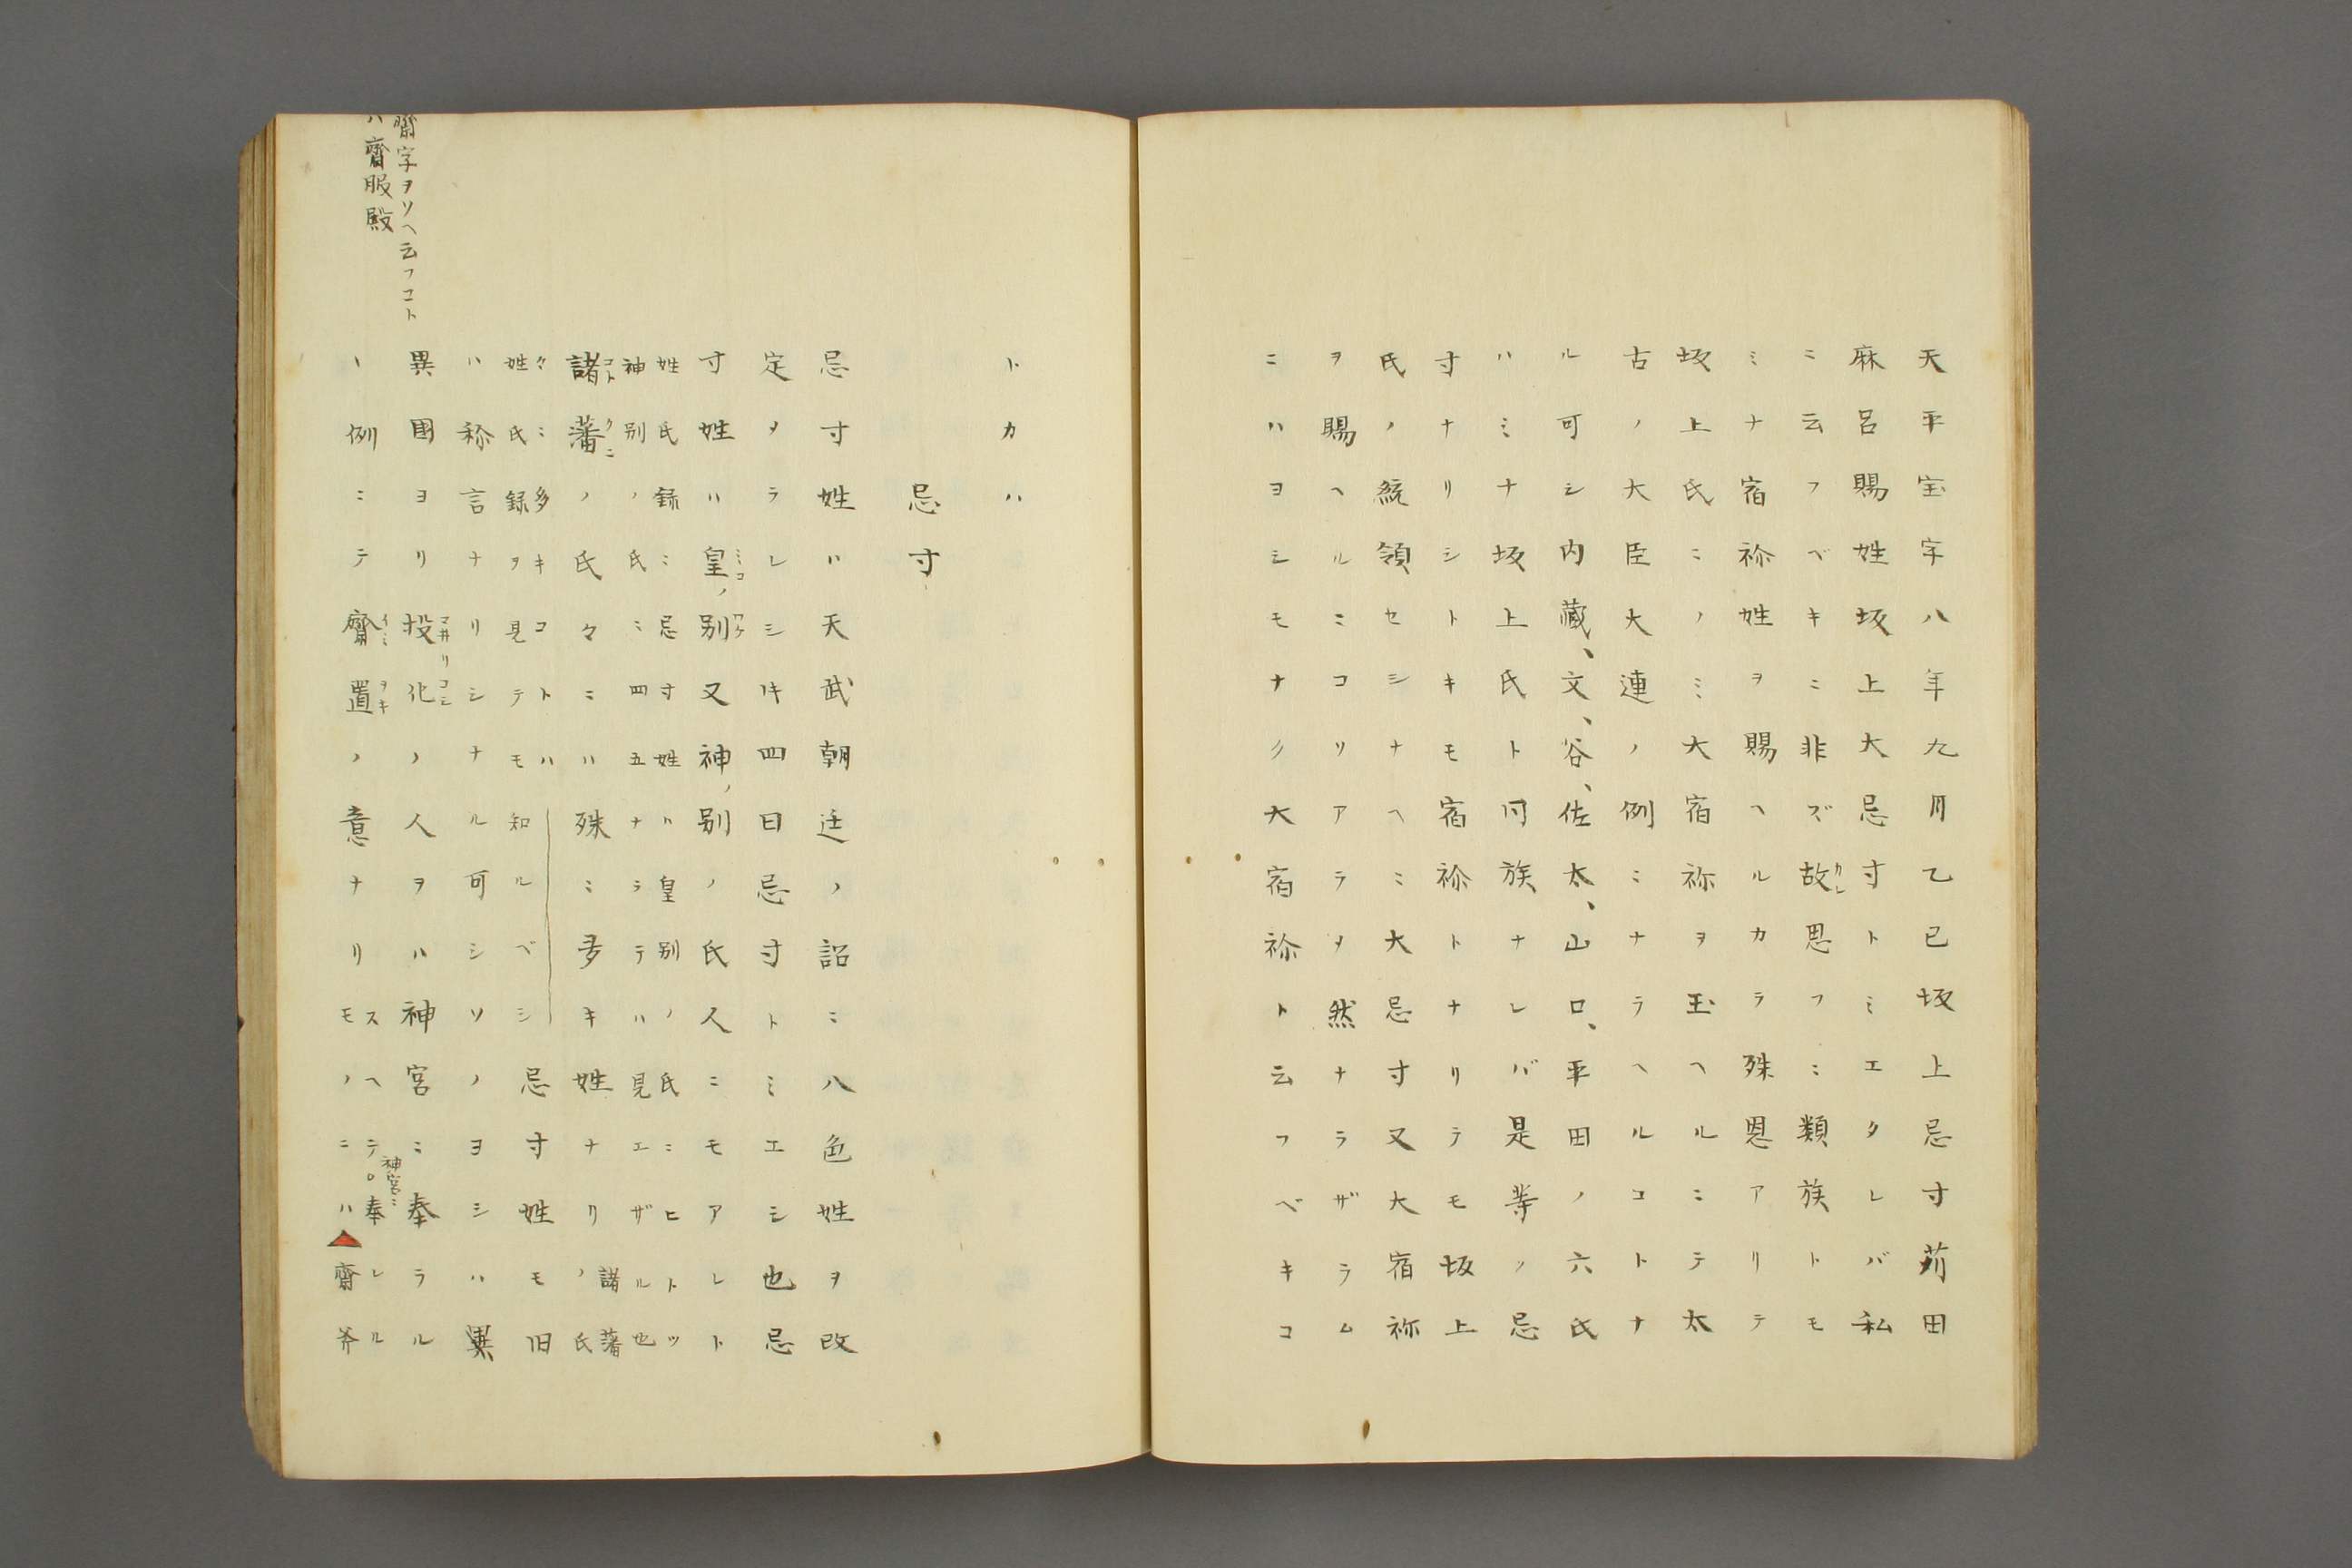 天平宝字八年九月乙巳坂上忌寸苅田
麻呂賜姓坂上大忌寸トミエタレバ私
ニ云フベキニ非ズ故思フニ類族トモ
カレ
ミナ宿祢姓ヲ賜ヘルカラ殊恩アリテ
坂上氏ニノミ大宿祢ヲ玉ヘルニテ太
古ノ大臣大連ノ例ニナラヘルコトナ
ル可シ内蔵、文、谷、佐太、山口、平田ノ六氏
ハミナ坂上氏ト同族ナレバ是等ノ忌
寸ナリシトキモ宿祢トナリテモ坂上
氏ノ統領セシナヘニ大忌寸又大宿祢
ヲ賜ヘルニコソアラヲ然ナラザラム
ニハヨシモナク大宿祢ト云フベキコ
トカハ
忌寸
忌寸姓ハ天武朝廷ノ詔ニ八色姓ヲ改
定ヲラレシキ四曰忌寸トミエシ也忌
寸姓ハ皇別又神別ノ氏人ニモアレト
ミコノワケ
姓氏録ニ忌寸姓ハ皇別ノ氏ニヒトツ
神別ノ氏ニ四五ナラテハ見エザル也
諸蕃ノ氏々ニハ殊ミ多キ姓ナリ
コトクニ
諸蕃
ノ氏
々ニ多キコトハ
姓氏録ヲ見テモ知ルベシ
忌寸姓モ旧
ハ称言ナリシナル可シソノヨシハ異
異国ヨリ投化ノ人ヲハ神宮ニ奉ラル
マ井リコシ
ヽ例ニテ齋置ノ意ナリ
イミヲキ
スヘテ奉レル
神宮ニ
モノニハ齋斧
齋字ヲソヘ云フコト
ハ齋服殿